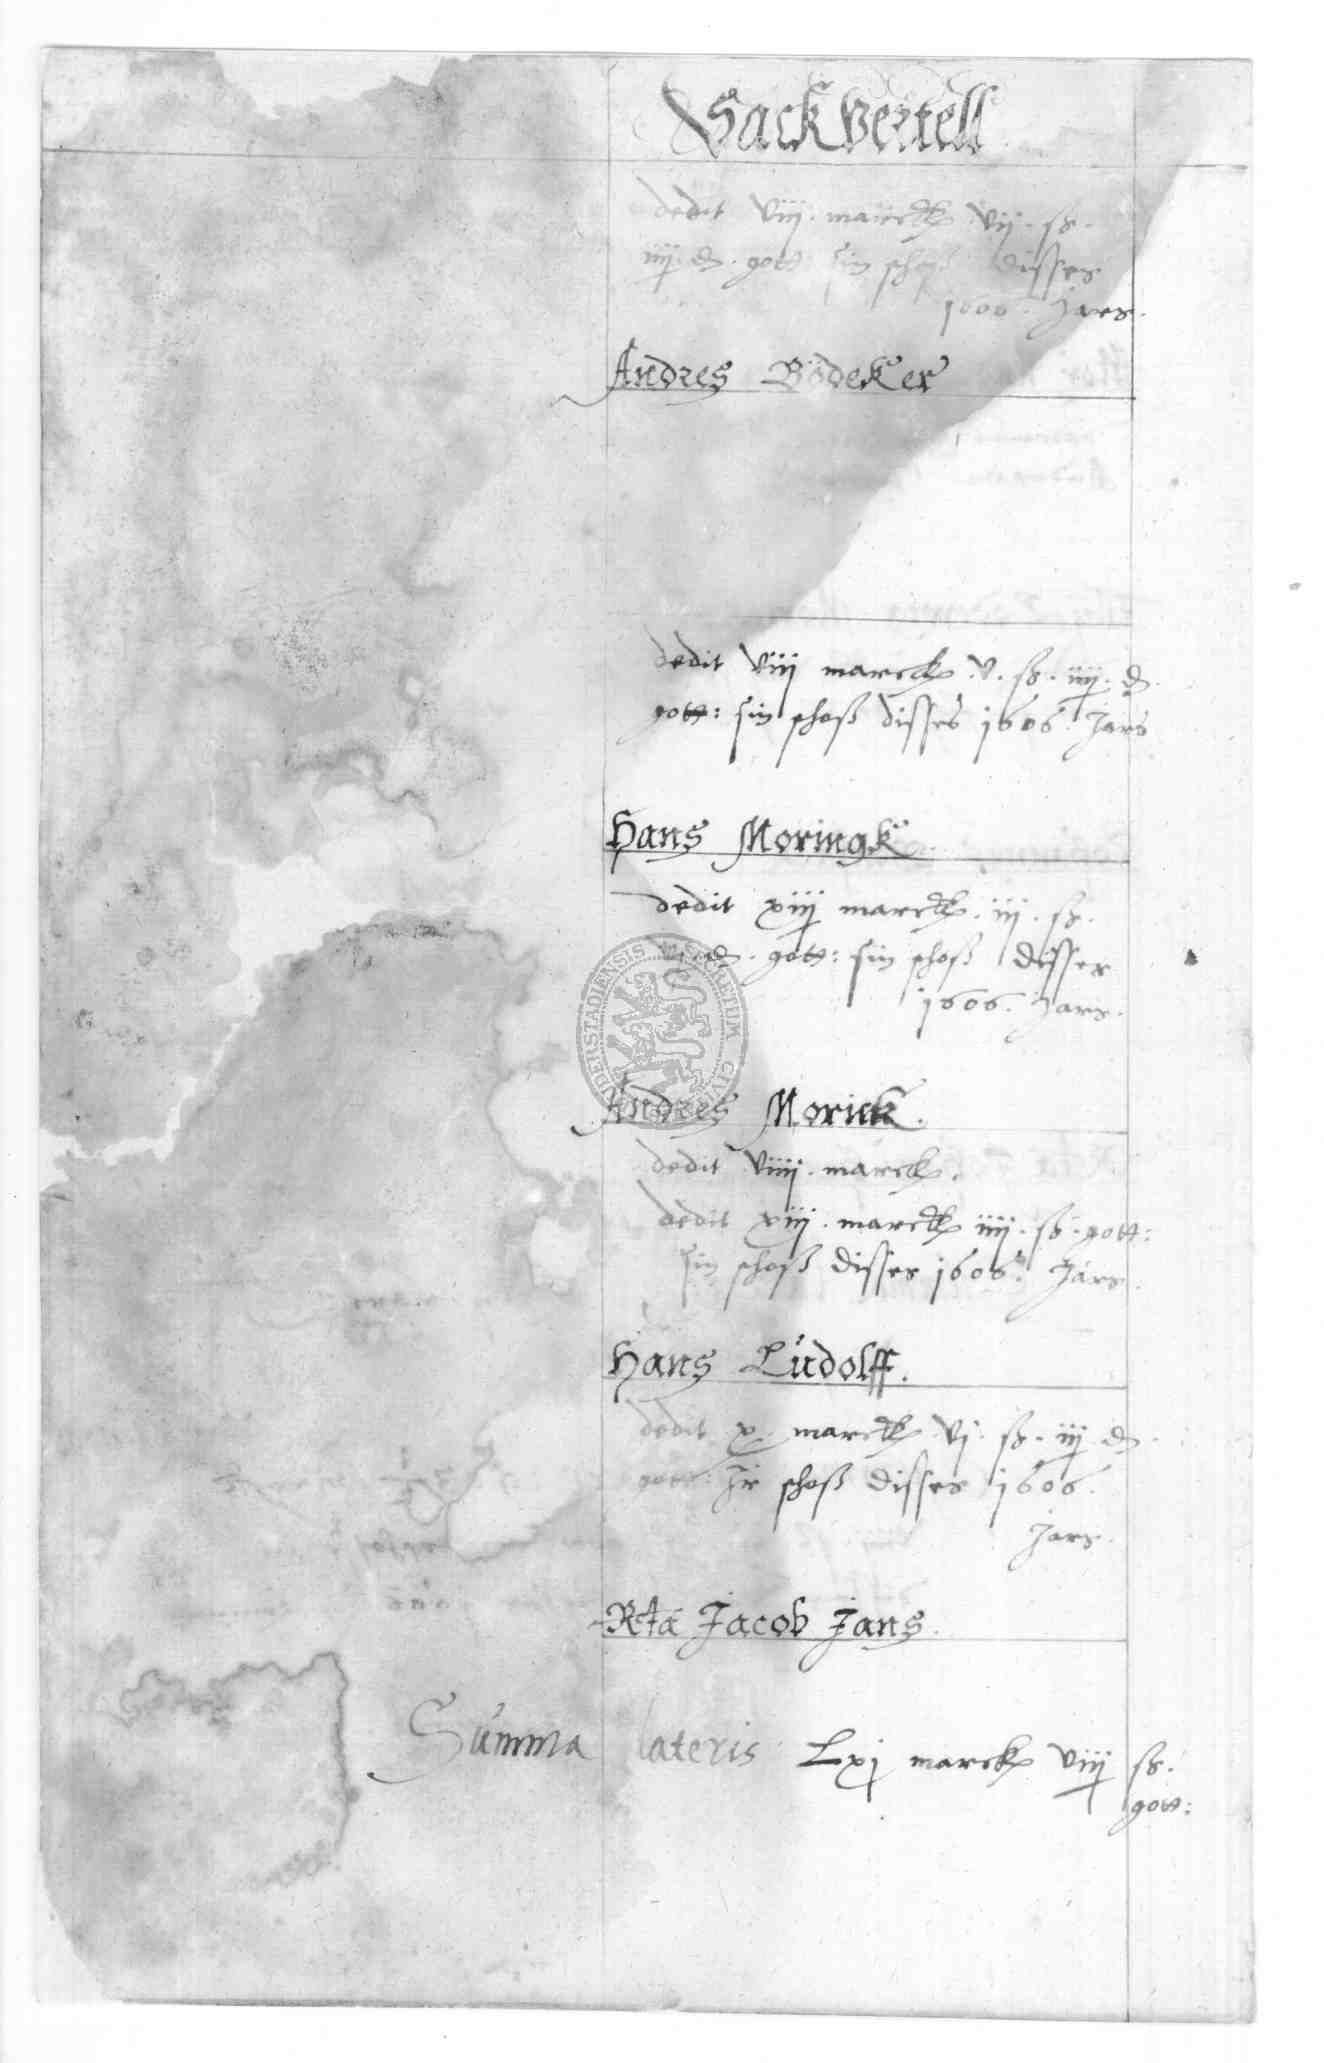 Sackvertell
dedit viij. marck vij. ß.
iiij. d. gott: sin schoß disses
1606. Jars.
Andres Bödeker
dedit viij marck. v. ß. iiij. d.
gott: sin schoß disses 1606. Jars
Hans Moringk
dedit xiij marck. iij. ß.
d. gott: sin schoß disses
1606. Jars.
Andres Morick.
dedit viiij. marck.
dedit xiij. marck iiij. ß. gott:
sin schoß disses 1606. Jars.
Hans Lüdolff.
dedit x. marck vj. ß. iij. d.
gott: Jr schoß disses 1606.
Jars.
Rta Jacob Jans.
Summa lateris Lxj marck viij ß.
gott:
SECRETUM CIVI DERSTADIENSIS